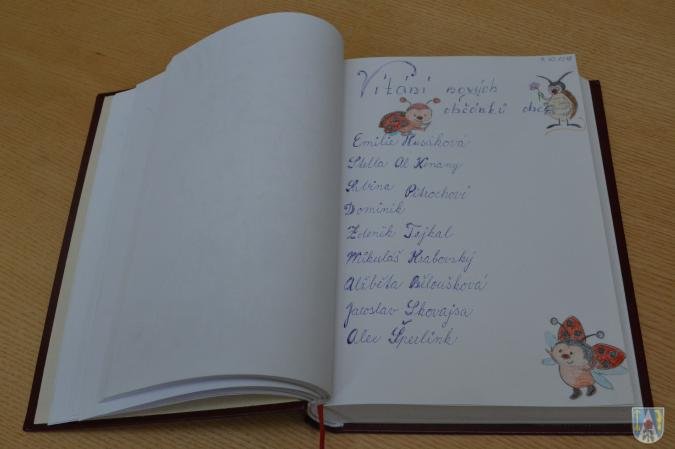 Vítání nových
občánků obce
Emilie Husáková
Stella Al Kenany
Sabina Petrochovi
Dominik
Zdeněk Tejkal
Mikuláš Hrabovský
Alžběta Běloušková
Jaroslav Skovajsa
Alex Šperlink